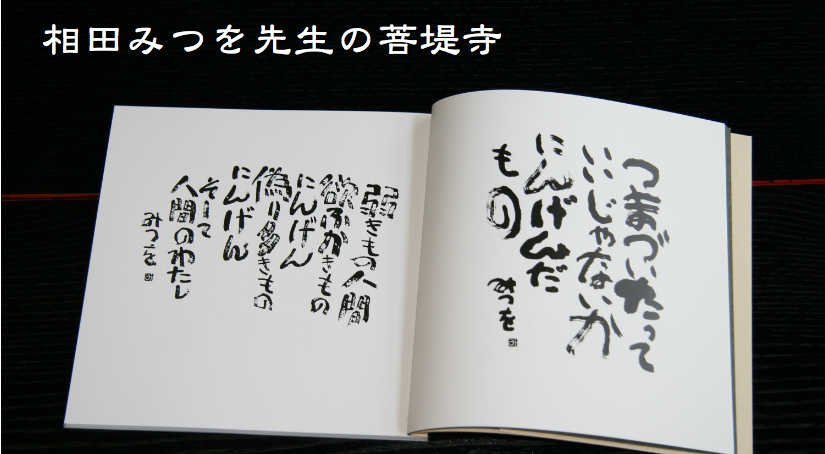 相田みつを先生の菩堤寺
つまづいたって
いいじゃないか
にんげんだ
もの
みつを
弱きもの人間
欲ふかきもの
にんげん
偽り多きもの
にんげん
そして
人間のわたし
みつを